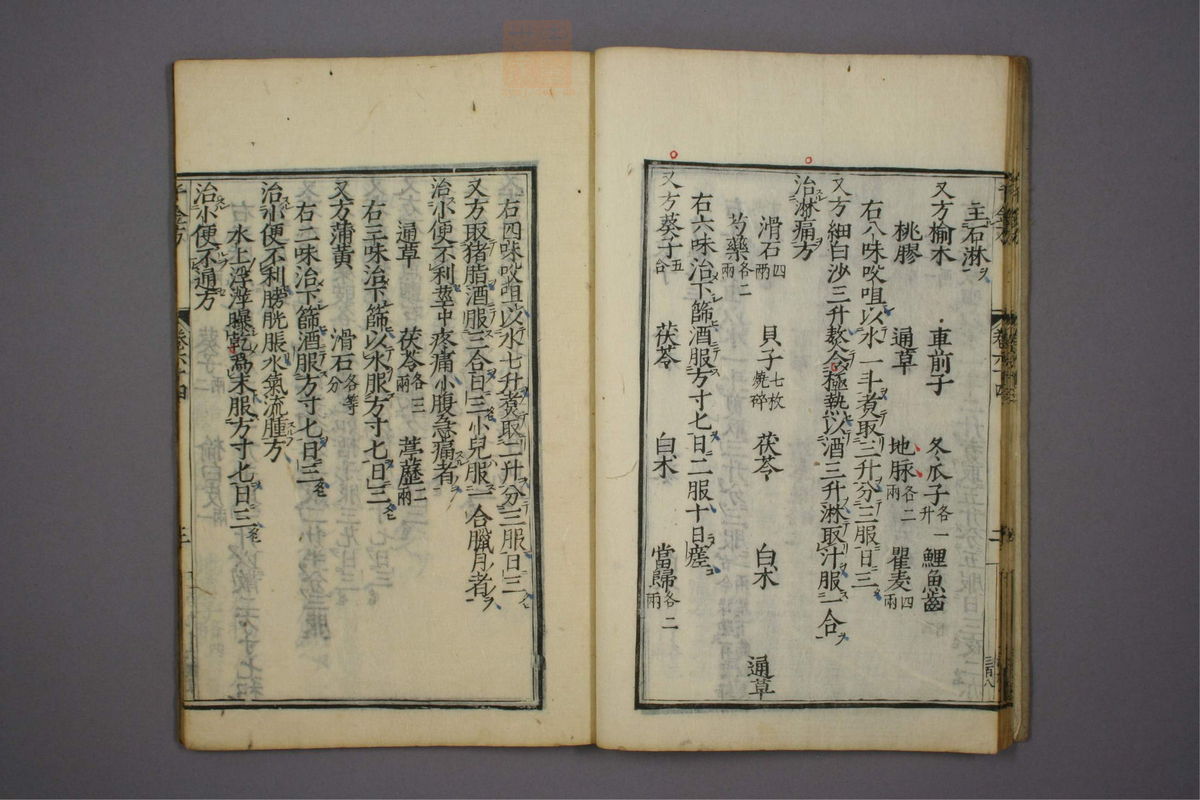 主石淋
又方榆木　車前子　冬瓜子各一升　鯉魚齒
桃膠　通草　地脉各二兩　瞿麦四兩
右八味㕮咀以水一斗煮取三升分三服日三
又方細白沙三升熬令極熱以酒三升淋取汁服一合
治淋痛方
滑石四兩　貝子七枚燒碎　茯苓　白朮　通草
芍藥各二兩
右六味治下篩酒服方寸匕日二服十日瘥
又方葵子五合　茯苓　白朮　當歸各二兩
右四味㕮咀以水七升煮取二升分三服日三
又方取猪脂酒服三合日三小兒服一合臘月者
治小便不利莖中疼痛小腹急痛者
通草　茯苓各三兩　葶藶二兩
右三味治下篩以水服方寸匕日三
又方蒲黄　滑石各等分
右二味治下篩酒服方寸匕日三
治小便不利膀胱脹水氣流腫方
水上浮萍曝乾爲末服方寸匕日三
治小便不通方
千金方
卷六十四
三
三百八